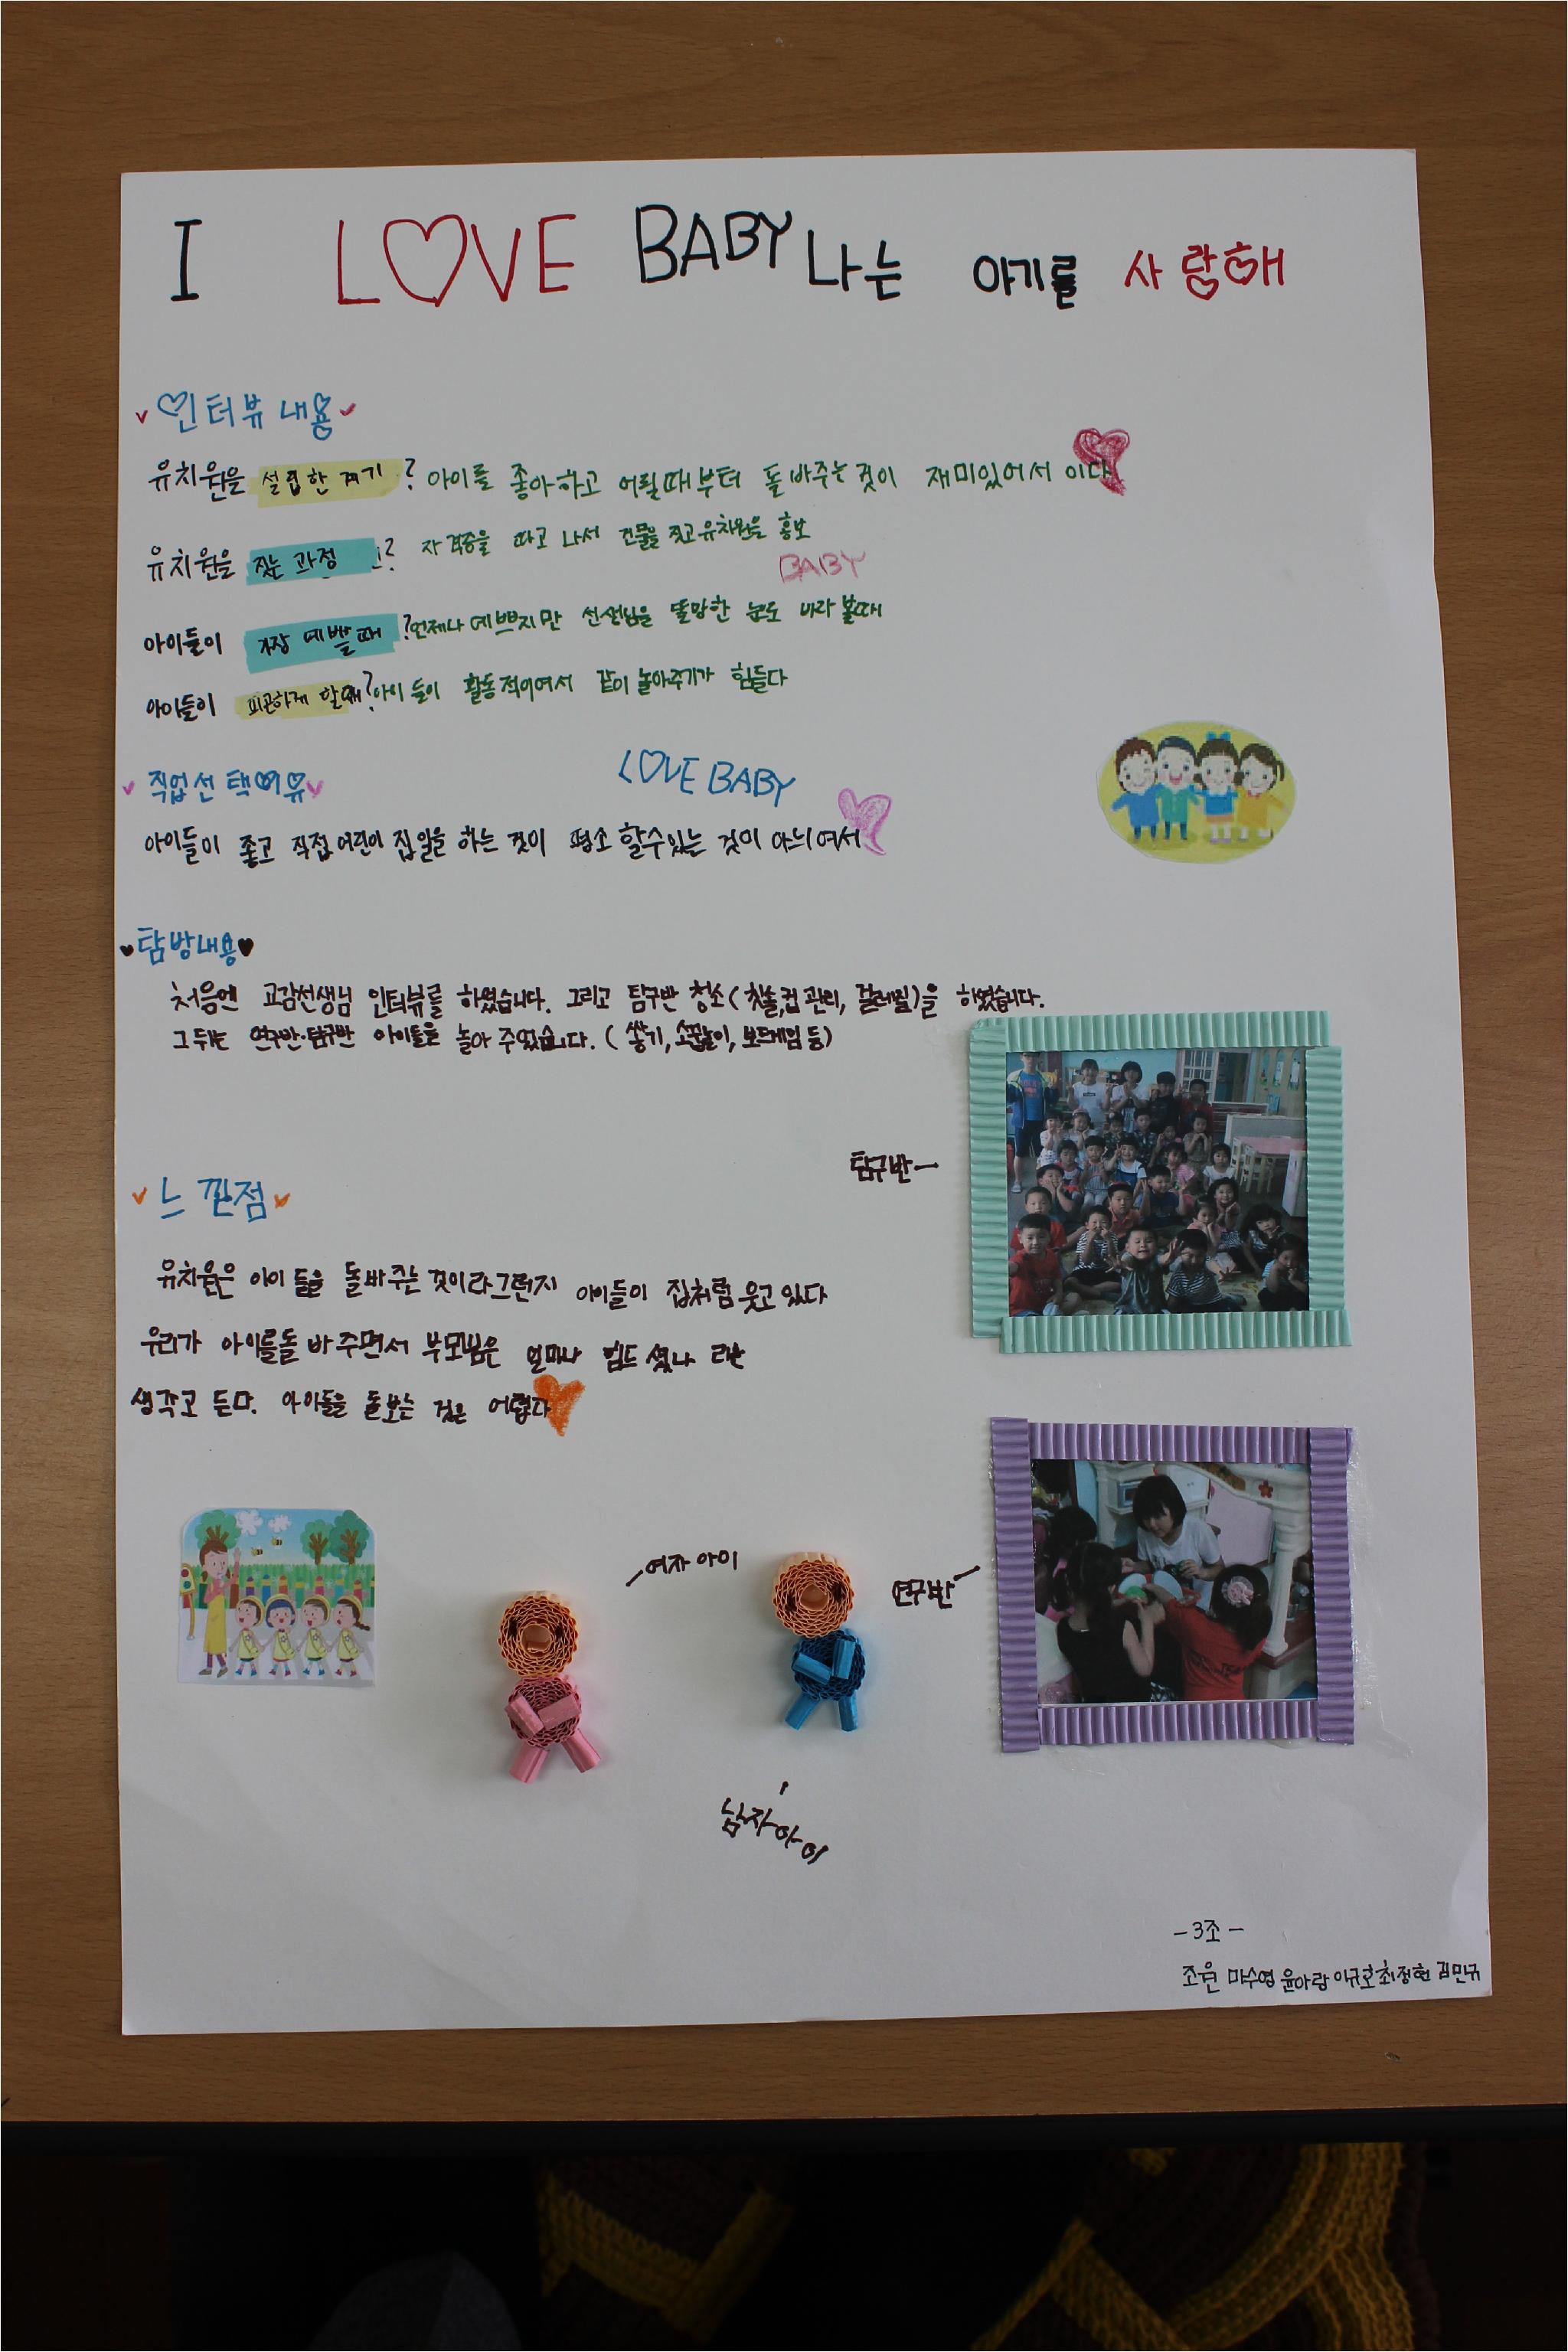 I LOVE BABY 나는 아기를 사랑해
인터뷰 내용
유치원을 설립한 계기? 아이를 좋아하고 어릴때부터 돌봐주는것이 재미있어서 이다.
유치원을 짓는 과정? 자격증을 따고 나서 건물을 짓고 유치원을 홍보
BABY
아이들이 가장 예쁠때? 언제나 예쁘지만 선생님을 똘망한 눈으로 바라 볼때
아이들이 피곤하게 할때? 아이들이 활동적이여서 같이 놀아주기가 힘들다
직업선택이유
LOVE BABY
아이들이 좋고 직접 어린이집 일을 하는 것이 평소 할수있는 것이 아니여서
탐방내용
처음엔 교감선생님 인터뷰를 하였습니다. 그리고 탐구반 청소(칫솔,컵 관리, 걸레질)을 하였습니다.
그 뒤는 연구반·탐구반 아이들을 놀아 주었습니다. (쌓기, 소꿉놀이, 보드게임 등)
탐구반
느낀점
유치원은 아이들을 돌봐주는 것이라그런지 아이들이 집처럼 웃고 있다
우리가 아이를돌봐주면서 부모님은 얼마나 힘드셨나 라는
생각고 든다. 아이들을 돌보는 것은 어렵다
여자 아이
연구반
남자아이
-3조-
조원 마수영 윤아랑 이규호 최정현 김민규